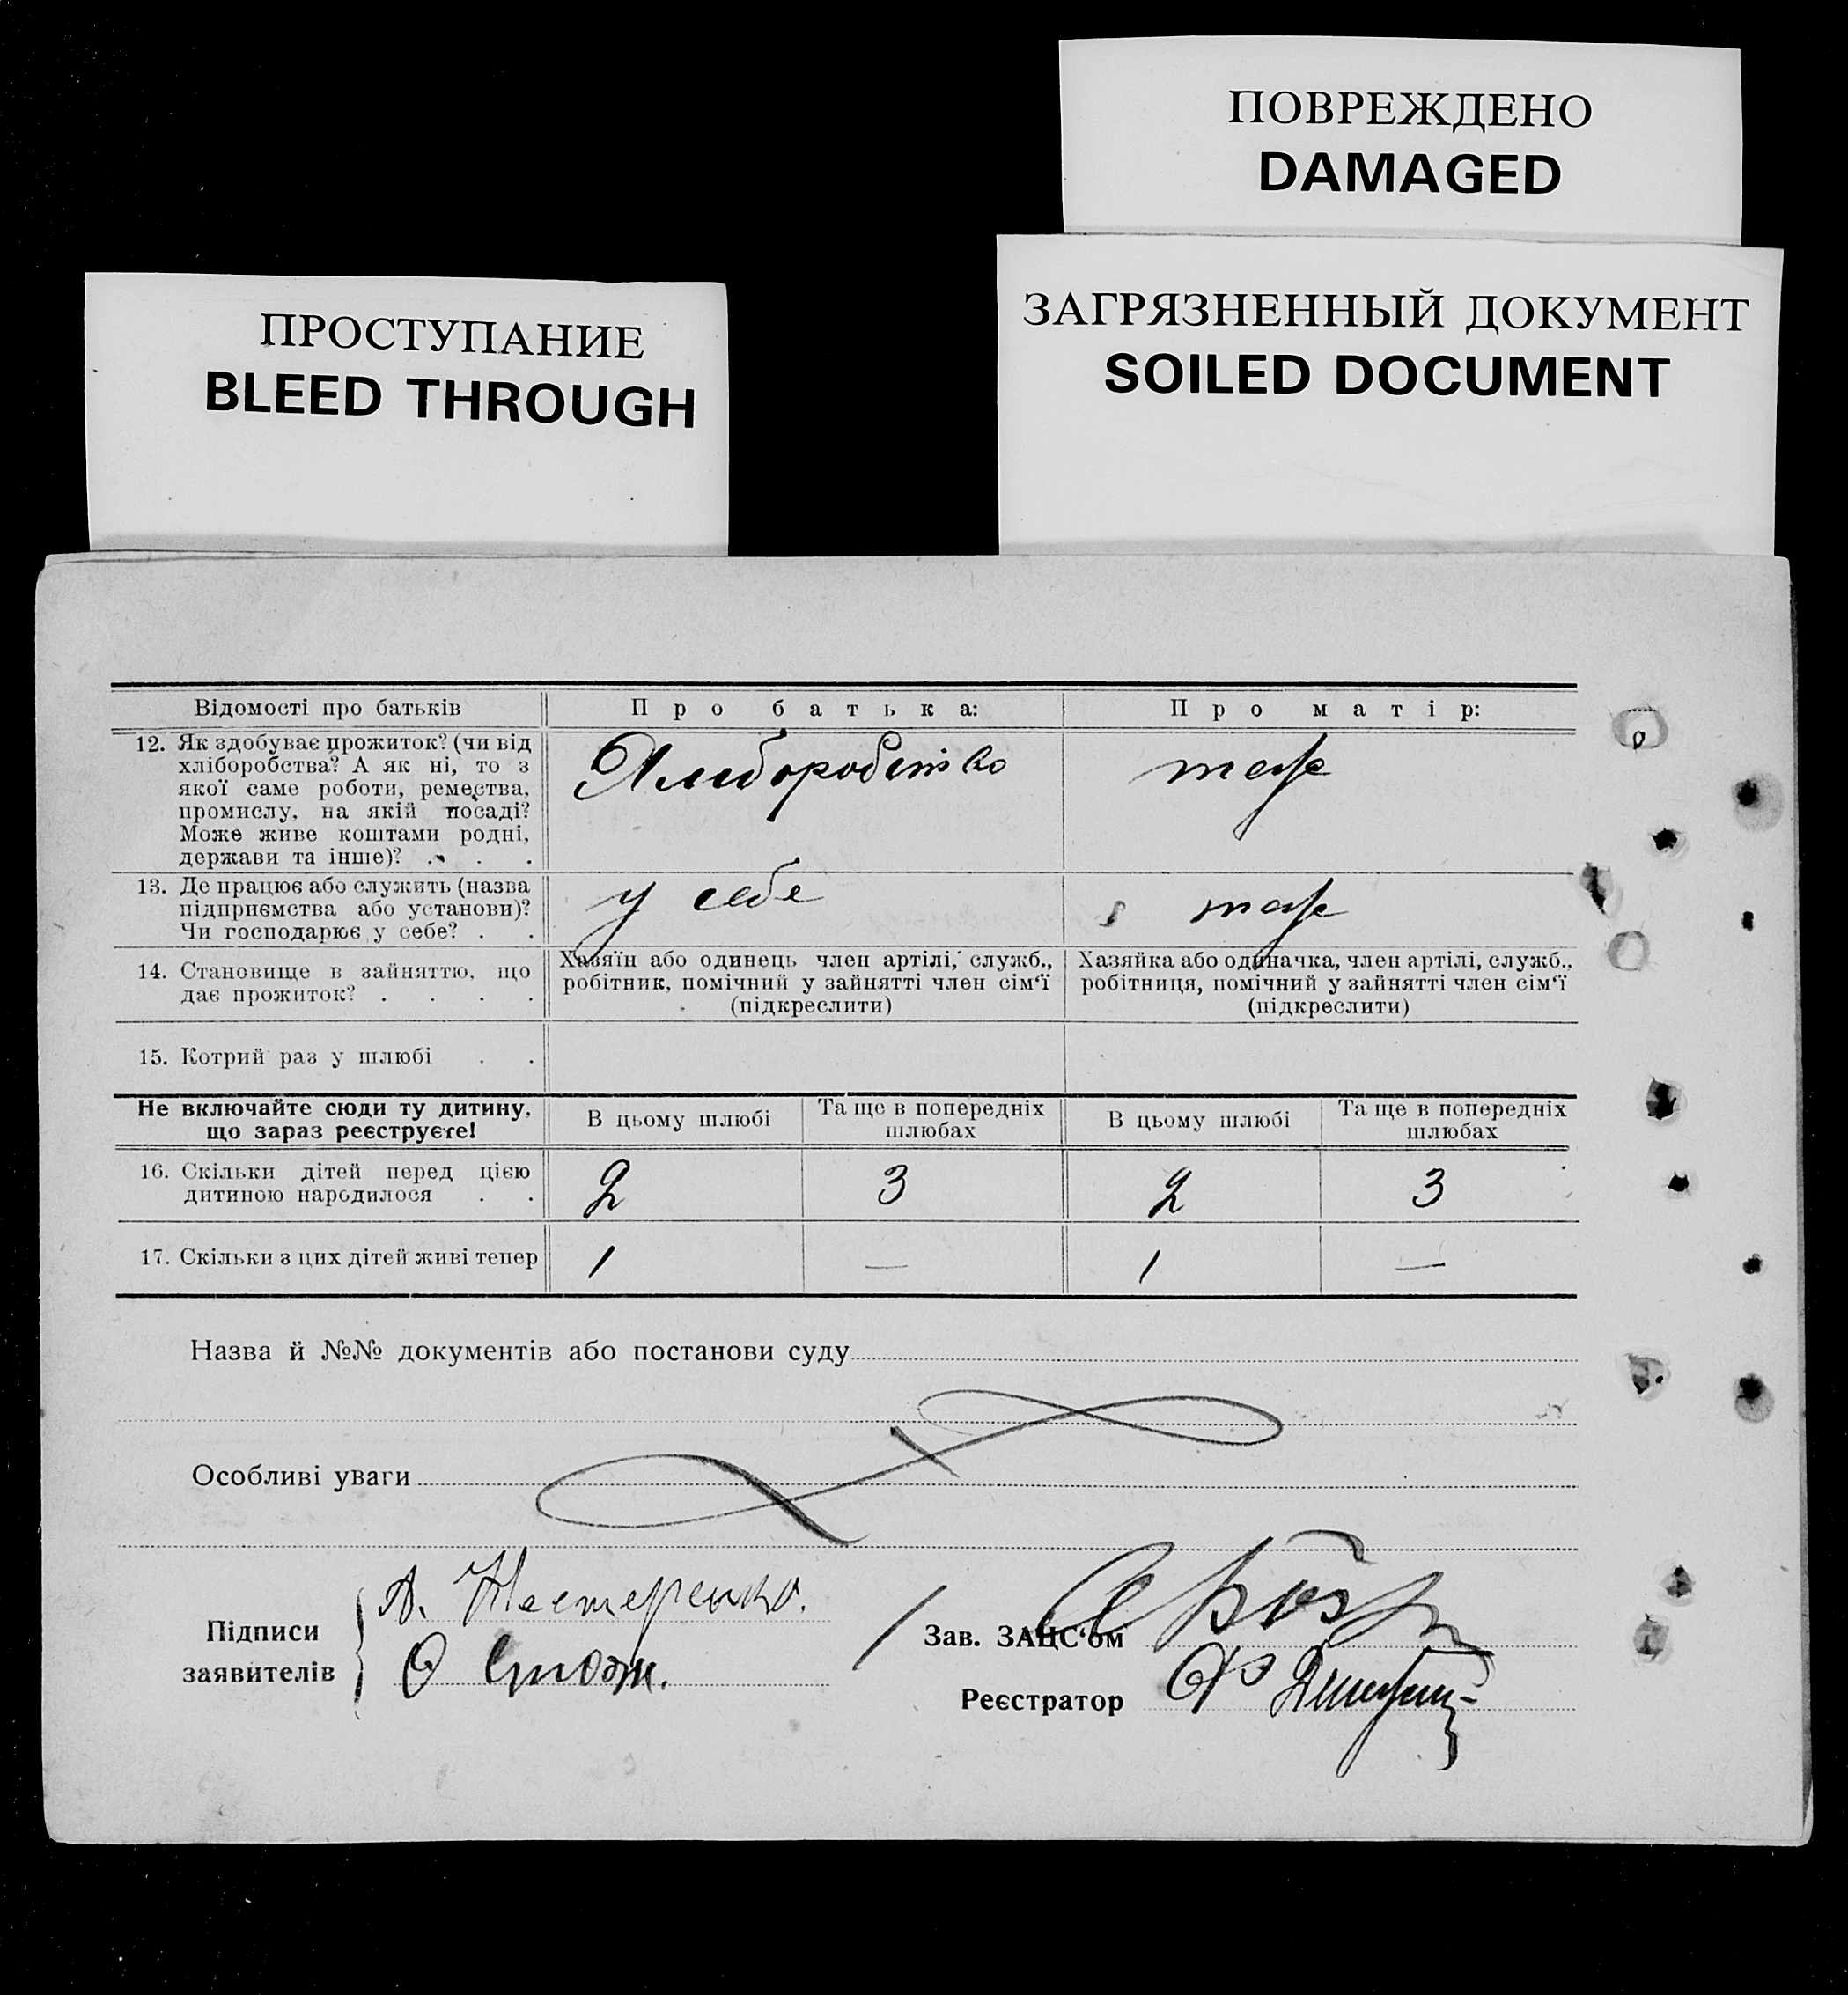 ПОВРЕЖДЕНО
DAMAGED
ПРОСТУПАНИЕ
BLEED THROUGH
ЗАГРЯЗНЕННЫЙ ДОКУМЕНТ
SOILED DOCUMENT
Відомості про батьків
Про батька:
Про матір:
12. Як здобуває прожиток? (чи від
хліборобства? А як ні, то з
якої саме роботи, ремества,
промислу, на якій посаді?
Може живе коштами родні,
держави та інше)? . . .
Хліборобство
теж
13. Де працює або служить (назва
підприємства або установи)?
Чи господарює у себе? . .
у себе
теж
14. Становище в зайняттю, що
дає прожиток? . . . .
Хазяїн або одинець член артілі, служб.,
робітник, помічний у зайнятті член сім'ї
(підкреслити)
Хазяйка або одиначка, член артілі, служб.,
робітниця, помічний у зайнятті член сім'ї
(підкреслити)
15. Котрий раз у шлюбі . .
Не включайте сюди ту дитину,
що зараз реєструєте!
В цьому шлюбі
Та ще в попередніх
шлюбах
В цьому шлюбі
Та ще в попередніх
шлюбах
16. Скільки дітей перед цією
дитиною народилося . .
2 3 2 3
17. Скільки з цих дітей живі тепер
1 — 1 —
Назва й №№ документів або постанови суду
Особливі уваги
Підписи
заявителів
А. Нестеренко.
Зав. ЗАЦС'ом
Реєстратор